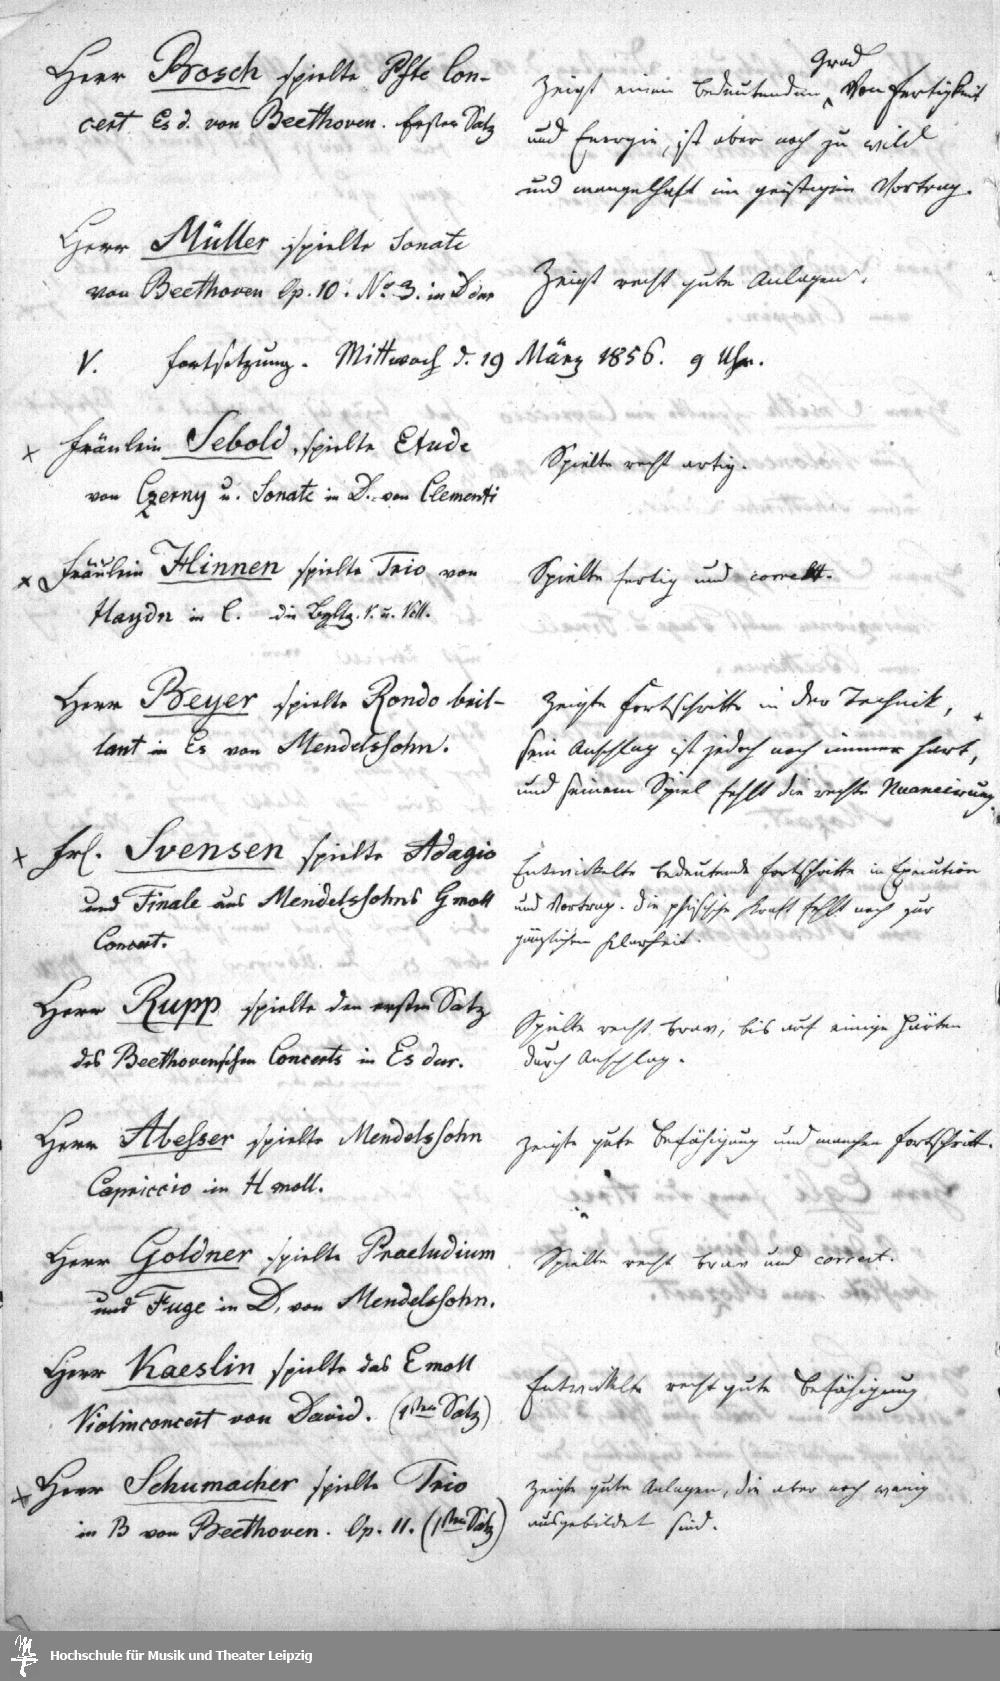 Herr Brosch spielte Pfte Con-
cert Es d. von Beethoven. Erster Satz
Grad
Zeigt einen bedeutenden von Fertigkeit
und Energie, ist aber noch zu wild
und mangelhaft im geistigen Vortrag.
Herr Müller spielte Sonate
von Beethoven Op. 10. No 3. in D dur
Zeigt recht gute Anlagen.
V. Fortsetzung. Mittwoch d. 19 März 1856. 9 Uhr.
x Fräulein Sebold, spielte Etude
von Czerny u. Sonate in D. von Clementi
Spielte recht artig.
x Fräulein Hinnen spielte Trio von
Haydn in C. die Bgltg. V. u. Vcll.
Spielte fertig und correkt.
Herr Beyer spielte Rondo bril-
lant in Es von Mendelssohn.
Zeigte Fortschritte in der Technik,
sein Anschlag ist jedoch noch immer hart,
und seinem Spiel fehlt die rechte Nuancirung.
x Frl. Svensen spielte Adagio
und Finale aus Mendelssohns G moll
Concert.
Entwickelte bedeutende Fortschritte in Execution
und Vortrag. Die phisische Kraft fehlt noch zur
gänzlichen Klarheit.
Herr Rupp spielte den ersten Satz
des Beethovenschen Concerts in Es dur.
Spielte recht brav, bis auf einige Härten
durch Anschlag.
Herr Abesser spielte Mendelssohn
Capriccio in H moll.
Zeigte gute Befähigung und manchen Fortschritt.
Herr Goldner spielte Praeludium
und Fuge in D, von Mendelssohn.
Spielte recht brav und correct.
Herr Kaeslin spielte das E moll
Violinconcert von David. (1sten Satz)
Entwickelte recht gute Befähigung
x Herr Schumacher spielte Trio
in B von Beethoven. Op. 11. (1sten Satz)
Zeigte gute Anlagen, die aber noch wenig
ausgebildet sind.
Hochschule für Musik und Theater Leipzig